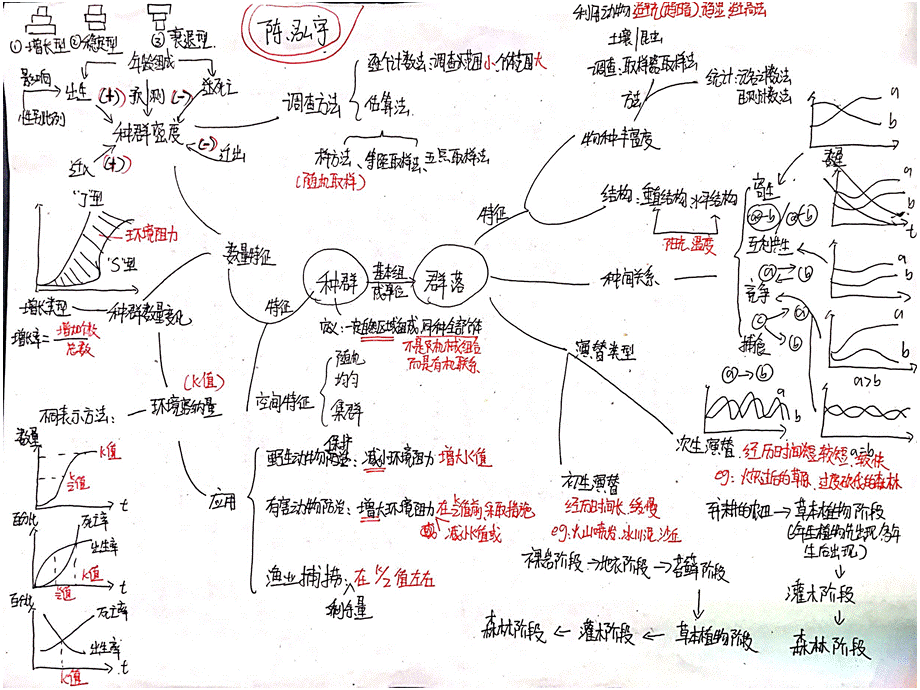 陈泓宇
①增长型 ②稳定型 ③衰退型
年龄组成
影响
性别比例
出生
(+)
预测
(-)
死亡
种群密度
迁入
(+)
(-)
迁出
调查方法
逐个计数法:调查范围小,个体大
估算法
样方法、等距取样法、五点取样法
(随机取样)
"J"型
环境阻力
"S"型
增长类型
种群数量变化
增长率=增加个数/总数
数量特征
特征
种群
基本组成单位
群落
定义:一定自然区域组成,同种全部个体
不是只机械组合
而是有机联系
空间特征
随机
均匀
集群
(K值)
环境容纳量
不同表示方法:
数量
K值
K/2值
t
百分比
死亡率
出生率
K值
K/2值
t
百分比
死亡率
出生率
K值
t
应用
野生动物保护:减小环境阻力 增大K值
有害动物防治:增大环境阻力 在K/2值前,采取措施
或 减小K值
渔业捕捞:在K/2值左右
利分量
利用动物
土壤/昆虫
调查:取样器取样法
方法
统计:记名计数法
目测计数法
物种丰富度
特征
结构:垂直结构、水平结构
阳光、温度
种间关系
寄生
a-b / a-b
互利共生
a b
竞争
c a
b
捕食
a→b
a
b
数量
a
b
t
a
b
a
b
a>b
a
b
a=b
演替类型
初生演替
经历时间长,缓慢
eg:火山喷发、冰川泥、沙丘
裸岩阶段→地衣阶段→苔藓阶段
森林阶段←灌木阶段←草本植物阶段
次生演替:经历时间短,较短,较快
eg:火灾过后的草原、过度砍伐的森林
弃耕的农田→草本植物阶段
(年生植物先出现,多年生后出现)
灌木阶段
森林阶段